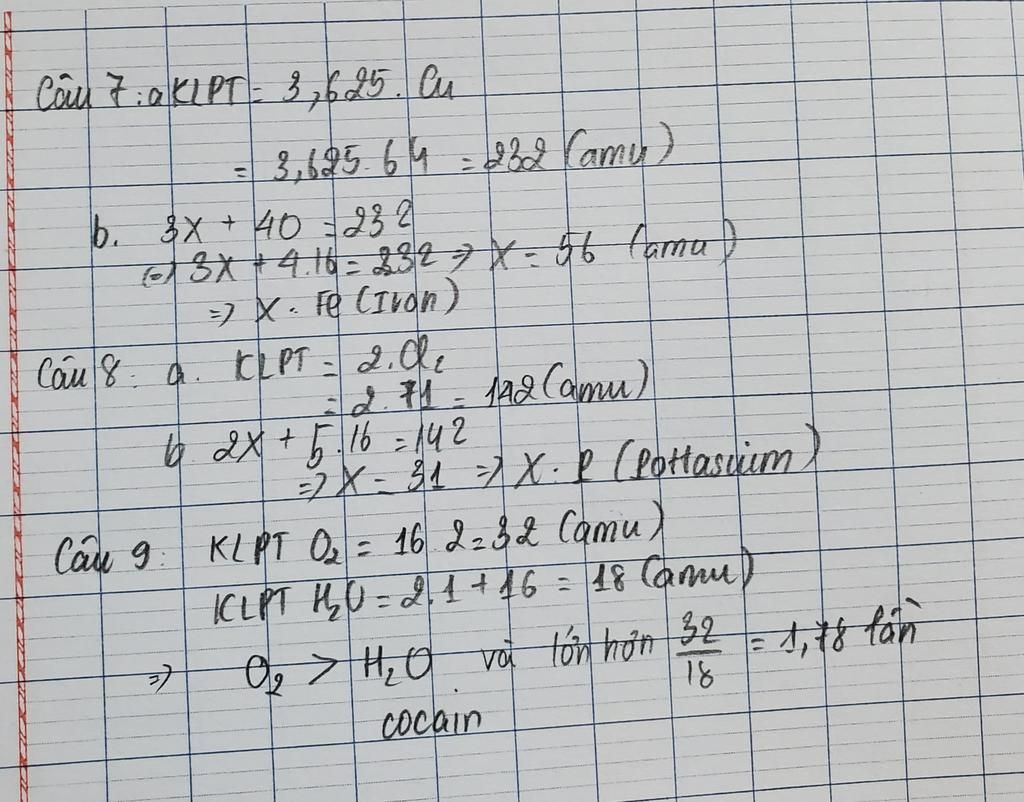 Câu 7: a KLPT = 3,625. Cu
= 3,625. 64 = 232 (amu)
b. 3X + 4O = 232
(=) 3X + 4.16 = 232 => X = 56 (amu)
=> X: Fe (Iron)
Câu 8: a. KLPT = 2. Cl₂
= 2. 71 = 142 (amu)
b 2X + 5.16 = 142
=> X = 31 => X: P (Pottasium)
Câu 9: KLPT O₂ = 16 2 = 32 (amu)
KLPT H₂O = 2.1 + 16 = 18 (amu)
=> O₂ > H₂O và lớn hơn 32/18 = 1,78 lần
cocain